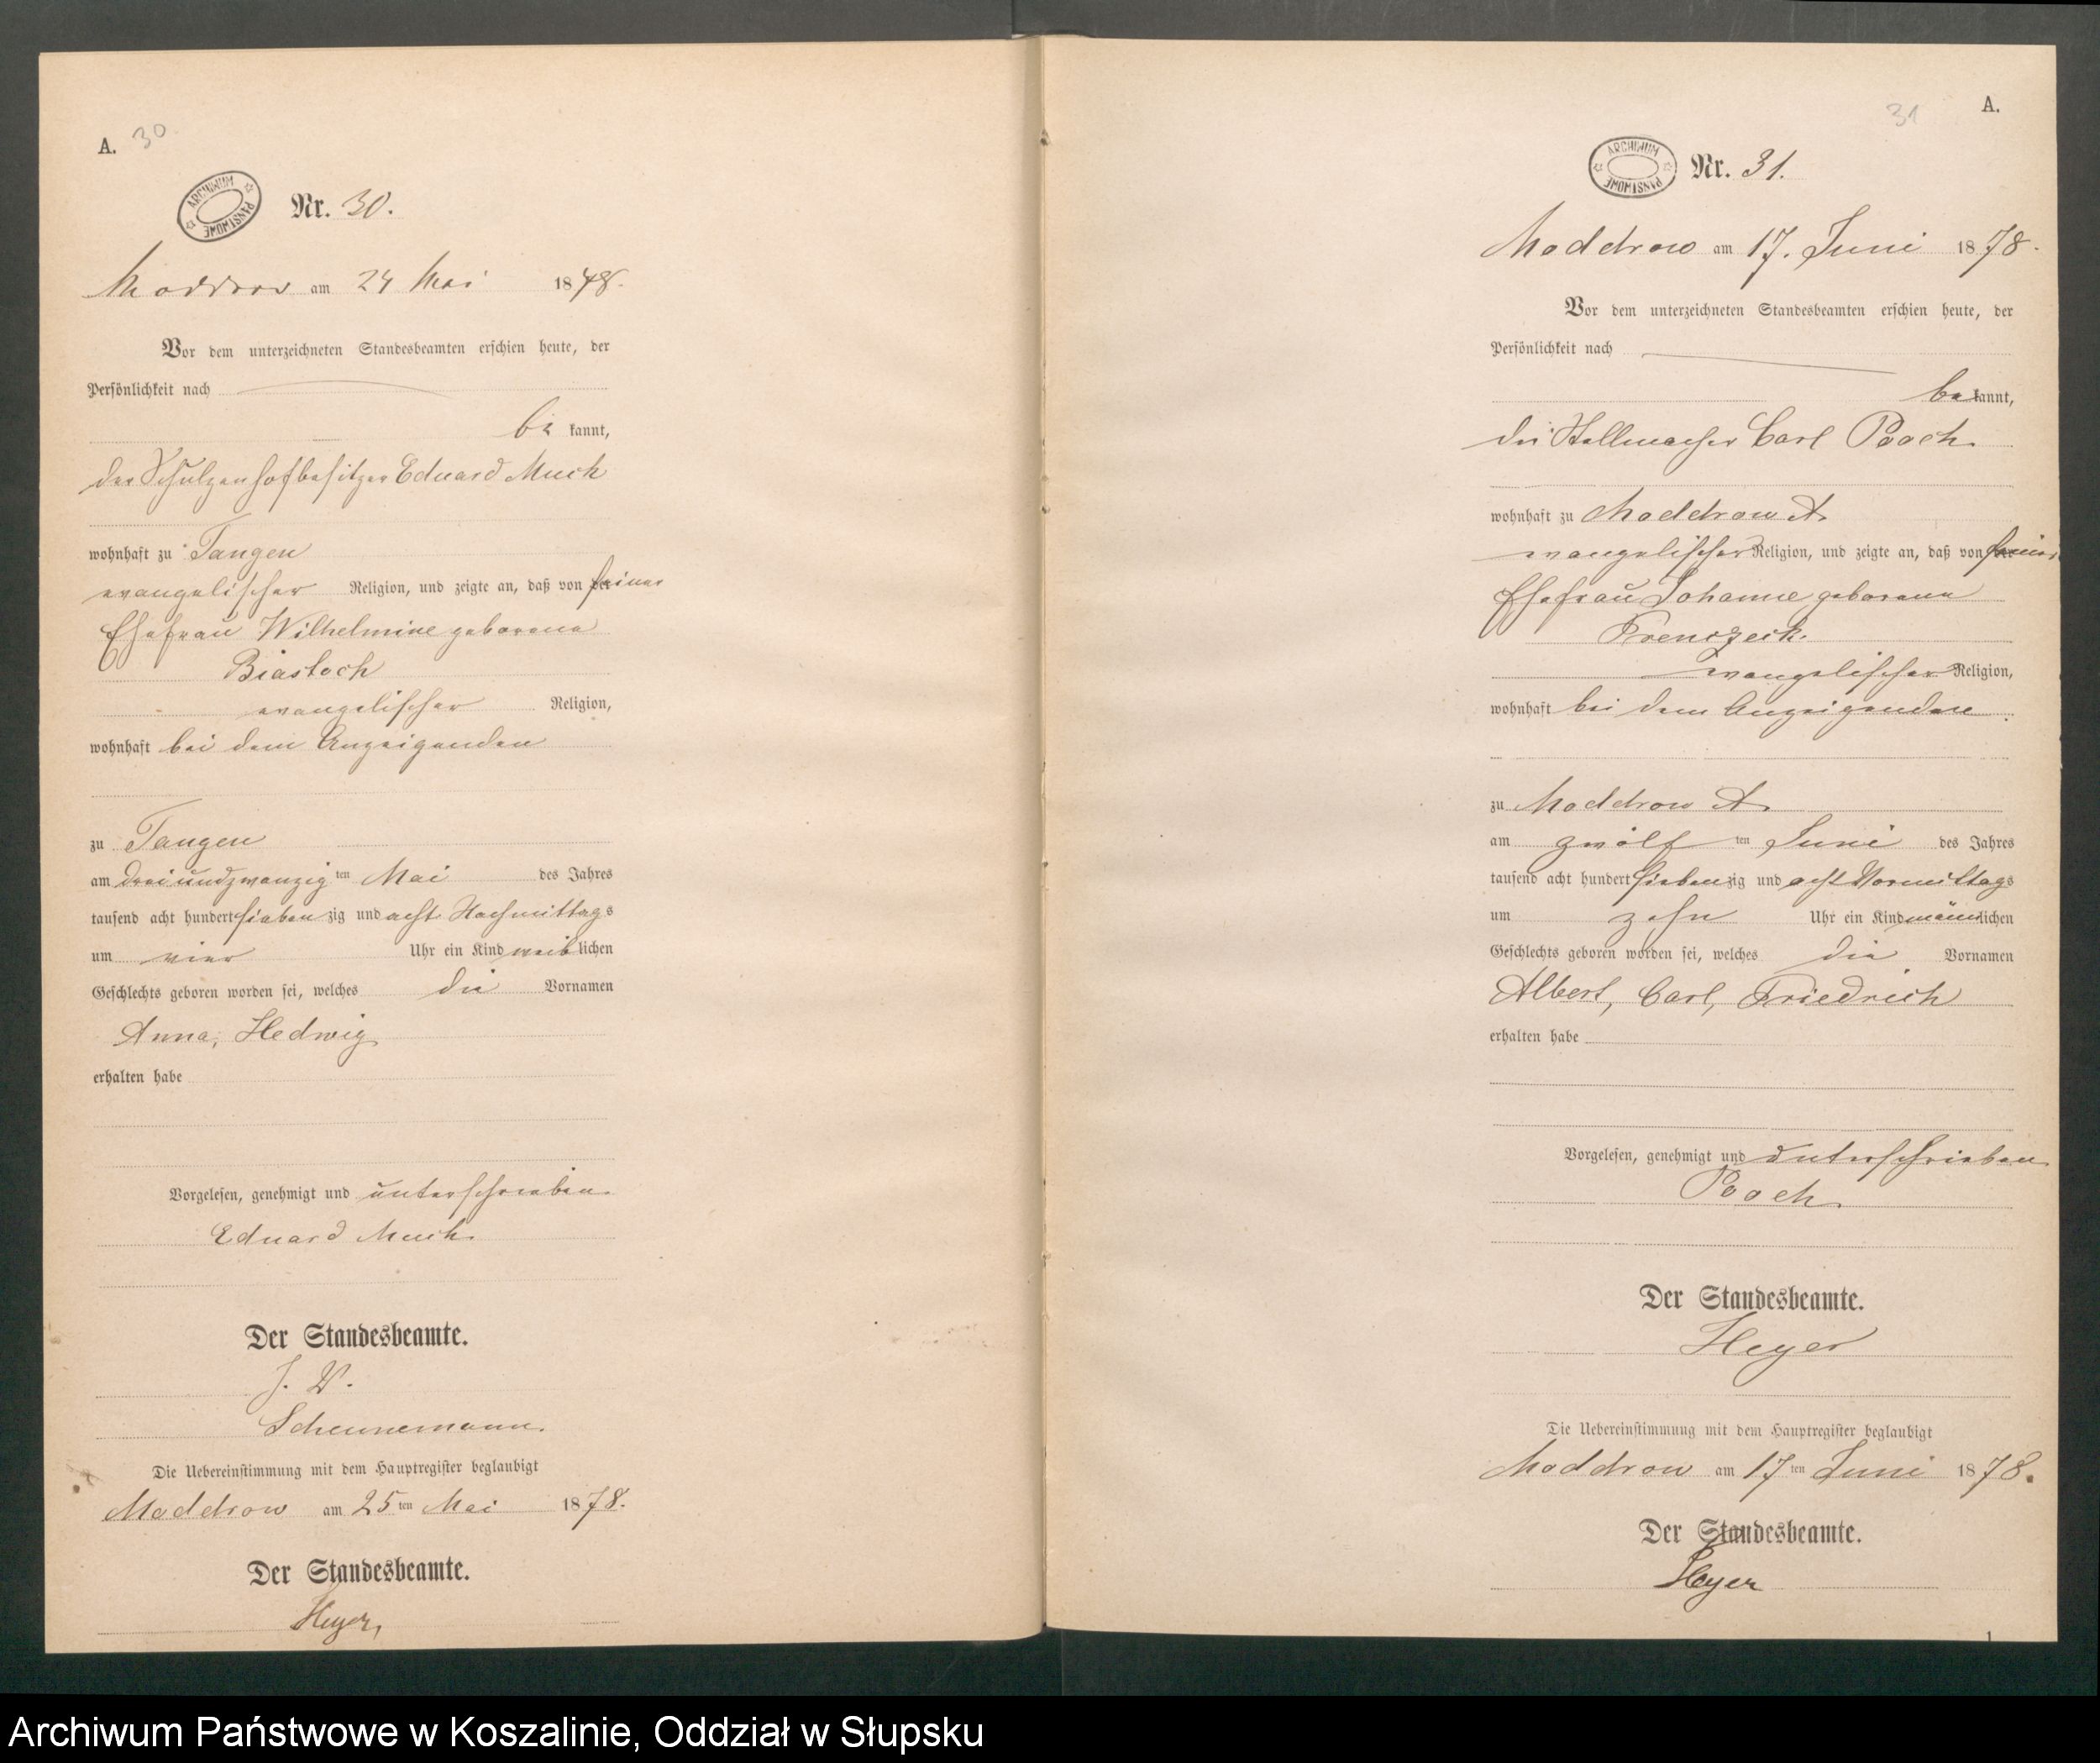 A. 30
ARCHIWUM PAŃSTWOWE
Nr. 30.
Moddrow am 24 Mai 1878.
Vor dem unterzeichneten Standesbeamten erschien heute, der
Persönlichkeit nach
be kannt,
der Schulzenhofbesitzer Eduard Much
wohnhaft zu Tangen
evangelischer Religion, und zeigte an, daß von der seiner
Ehefrau Wilhelmine geborene
Biastoch
evangelischer Religion,
wohnhaft bei dem Anzeigenden
zu Tangen
am dreiundzwanzig ten Mai des Jahres
tausend acht hundert sieben zig und acht Nachmittags
um vier Uhr ein Kind weib lichen
Geschlechts geboren worden sei, welches die Vornamen
Anna, Hedwig
erhalten habe
Vorgelesen, genehmigt und unterschrieben.
Eduard Much.
Der Standesbeamte.
J. V.
Scheunemann.
Die Uebereinstimmung mit dem Hauptregister beglaubigt
Moddrow am 25 ten Mai 1878.
Der Standesbeamte.
Heyer,
31 A.
ARCHIWUM PAŃSTWOWE
Nr. 31.
Moddrow am 17. Juni 1878.
Vor dem unterzeichneten Standesbeamten erschien heute, der
Persönlichkeit nach
be kannt,
der Stellmacher Carl Pooch
wohnhaft zu Moddrow A.
evangelischer Religion, und zeigte an, daß von der seiner
Ehefrau Johanne geborene
evangelischer Religion,
wohnhaft bei dem Anzeigenden
zu Moddrow A.
am zwölf ten Juni des Jahres
tausend acht hundert sieben zig und acht Vormittags
um zehn Uhr ein Kind männ lichen
Geschlechts geboren worden sei, welches die Vornamen
Albert, Carl, Friedrich
erhalten habe
Vorgelesen, genehmigt und unterschrieben
Pooch.
Der Standesbeamte.
Heyer
Die Uebereinstimmung mit dem Hauptregister beglaubigt
Moddrow am 17 ten Juni 1878.
Der Standesbeamte.
Heyer
1
Archiwum Państwowe w Koszalinie, Oddział w Słupsku